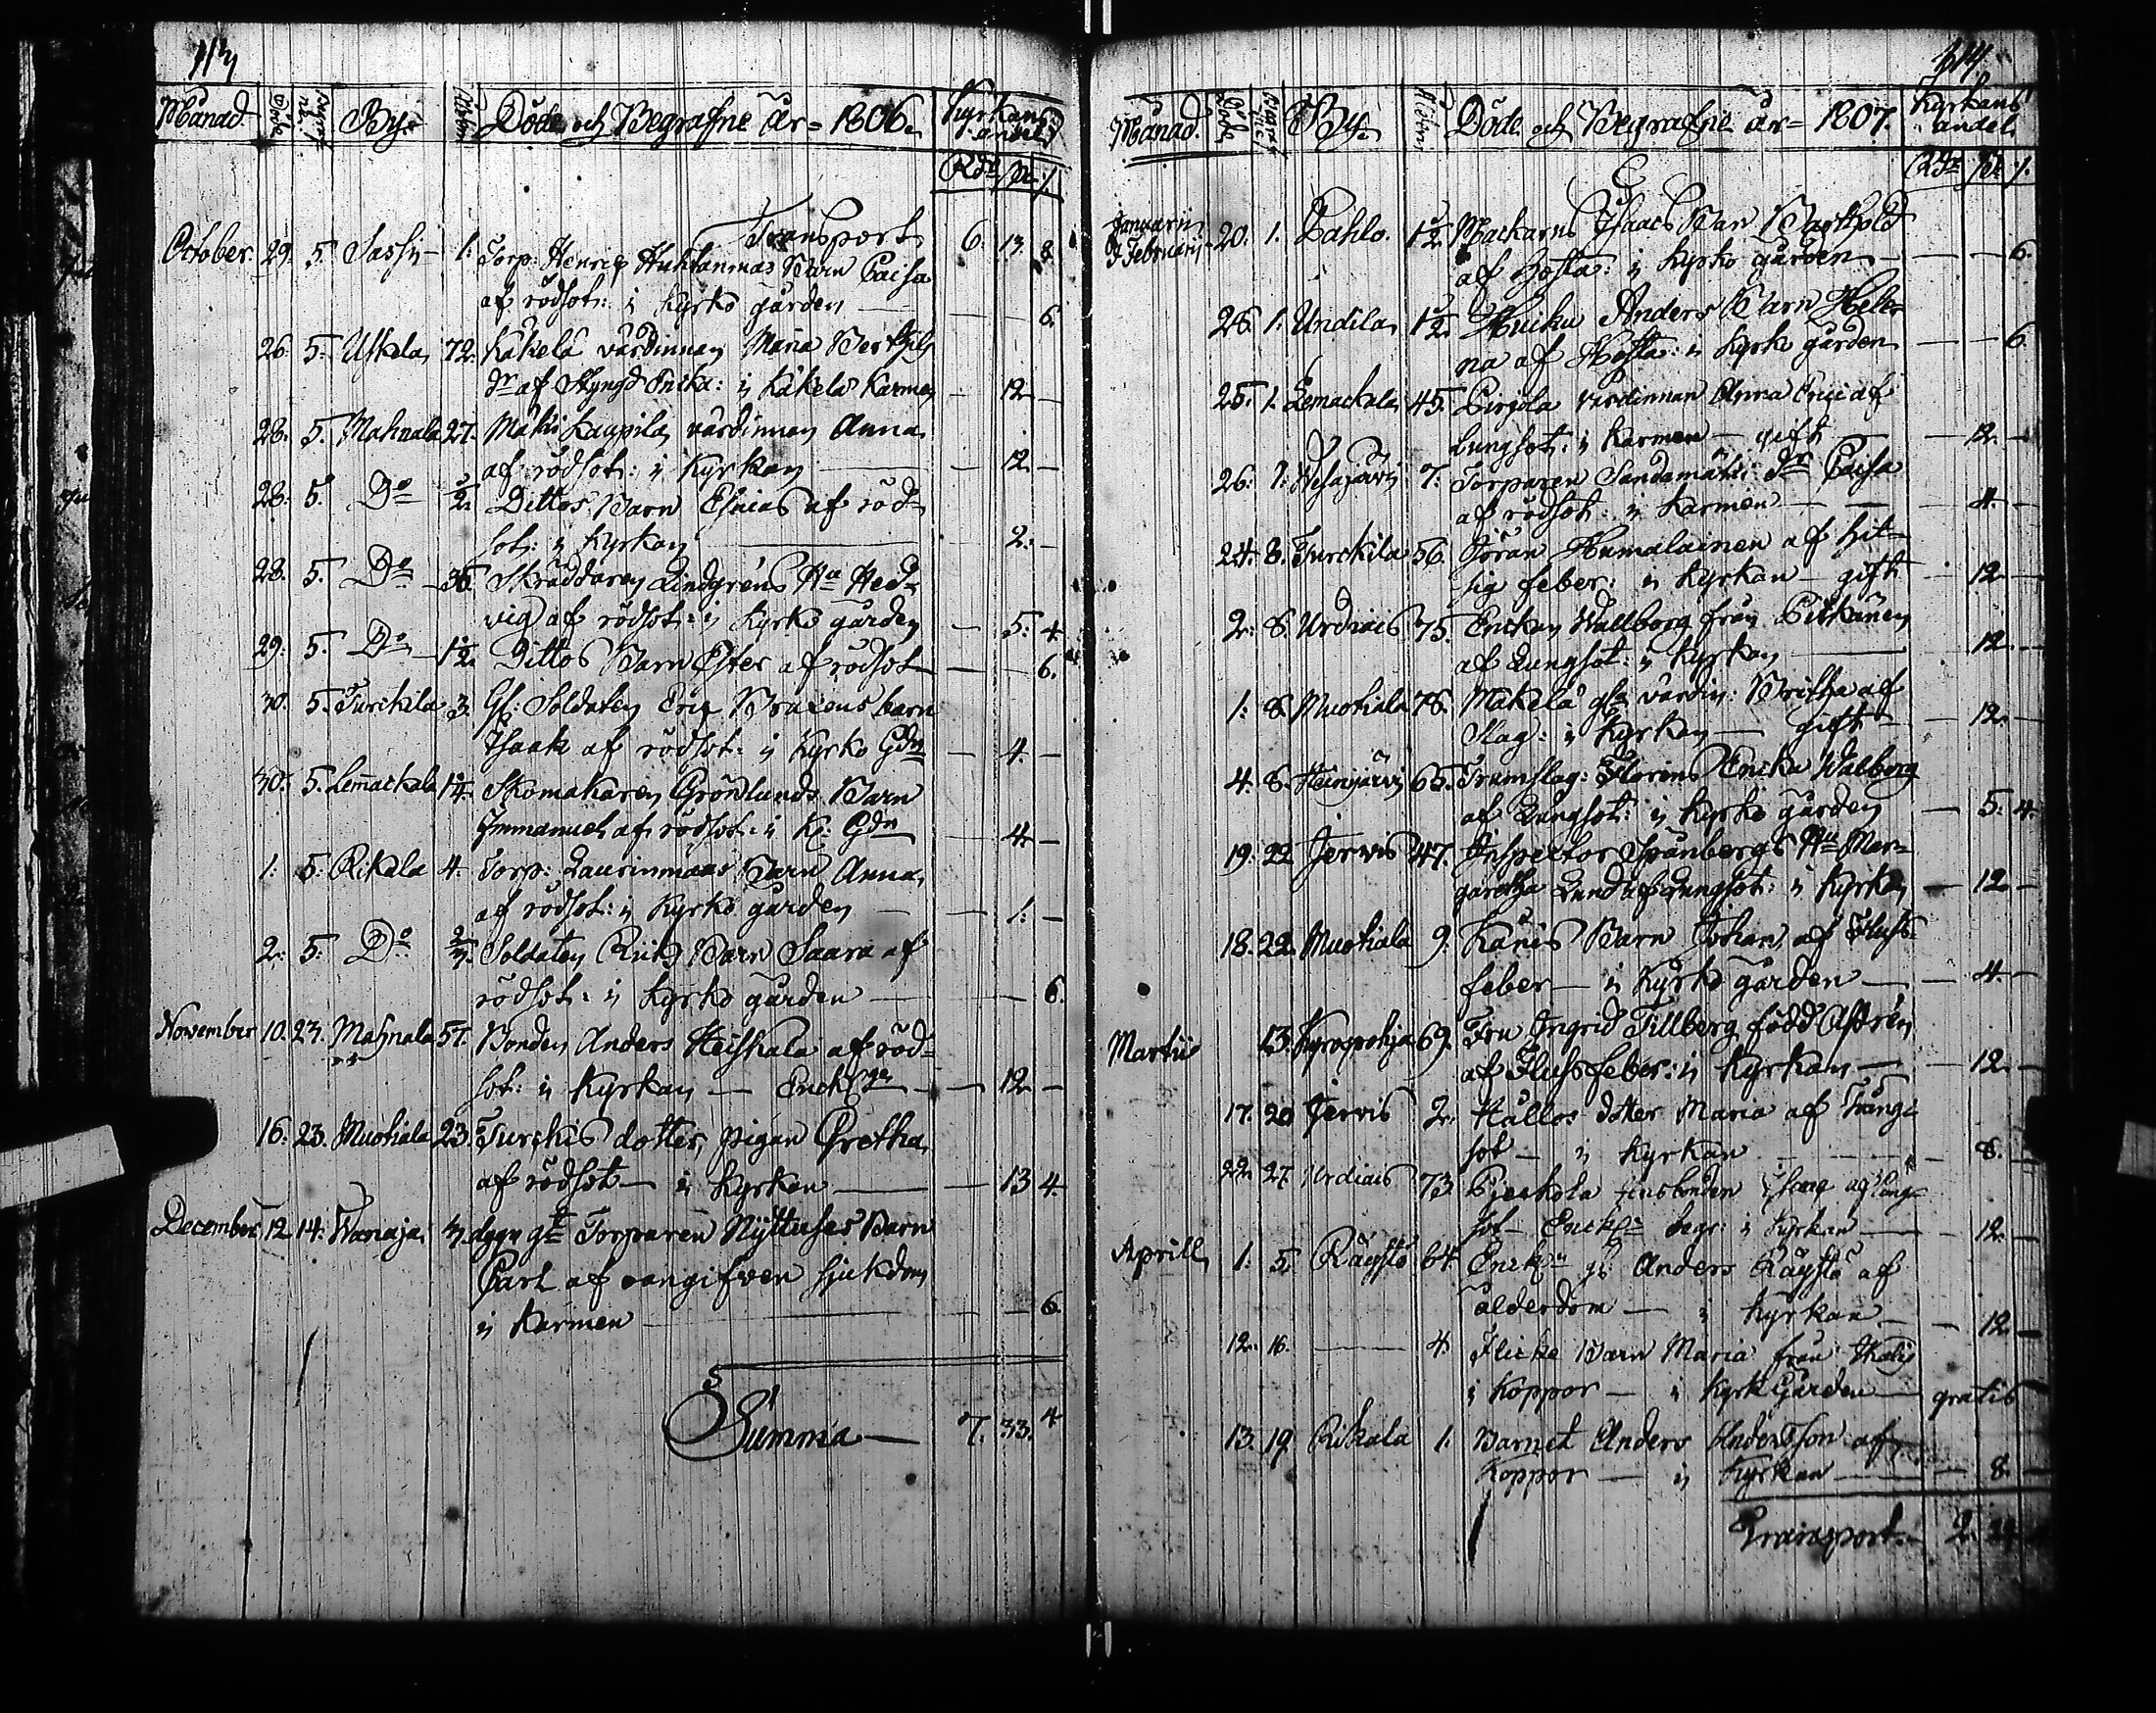 113
Månad Döde By: Ålder Döde och Begrafne År = 1806. Kyrkans andel
Rdr
Transport 6. 13. 8.
October. 29. 5. Sassi 1. Torp: Henric Huhtanmas Barn Caisa
af rödsot: i Kyrko gården — 6.
26. 5. Uskela 72. Käkelä värdinnan Maria Bertils
dr af Styngd Encka: i Käkelä Karmen — 12 —
28. 5. Mahnala 27. Mäki Kaupila värdinnan Anna
af rödsot: i Kyrkan — 12 —
28. 5. Do Dittos Barn Esaias af röd-
sot: i Kyrkan — 2. —
28. 5. Do 36 Skräddaren Lindgréns Hu Hed-
vig af rödsot: i Kyrko gården — 5. 4.
29. 5. Do 1/2 Dittos Barn Ester af rödsot — 6.
30. 5. Turckila 3. Gl: Soldaten Eric Braxens barn
Isaak af rödsot: i Kyrko Gdn — 4. —
30. 5. Lemackala 1/4 Skomakaren Grönlunds Barn
Immanuel af rödsot: i K: Gdn — 4. —
1. 5. Rikala 4. Torp: Laurinmaas Barn Anna
af rödsot: i Kyrko gården — 1. —
2. 5. Do Soldaten Barn Saara af
rödsot: i Kyrko gården — 6.
November 10. 23. Mahnala 57. Bonden Anders Heiskala af röd-
sot: i Kyrkan — — 12 —
16. 23. Muotiala 23. Turckis dotter, pigan Gretha
af rödsot — i Kyrkan — 13 4.
December 12 14. Wanaja 3 dygn gt Torparen Nyttuses Barn
Carl af oangifven sjukdom
i Karmen — 6.
Summa — 7. 33. 4
114
Månad Döde By. Ålder Döde och Begrafne år = 1807. Kyrkans andel
Rdr
Januarii
& Februarii 20. 1. Pahlo. 1/2 Mackarns Isaacs Barn Barthold
af hosta: i Kyrko gården — 6.
26. 1. Undila 1/2. Huiku Anders Barn Hele-
na af Hosta: i Kyrko gården — 6.
25. 1. Lemackala 45. Pirjola värdinnan Anna af
Lungsot: i Karmen — gift — 12. —
26. 1. Wesajärvi 7. Torparen Sandamäki dr Caisa
af rödsot: i Karmen — 4. —
24. 8. Turckila 56. Göran Humalainen af hit-
sig feber: i Kyrkan — gift — 12 —
2. 8. Urdiais 75. Enckan Wallborg från Pitkänen
af Lungsot: i Kyrkan — 12. —
1. 8. Muotiala 78. Mäkelä gla värdin: Britha af
Slag: i Kyrkan — gift — 12. —
4. 8. Heinijärvi 65. Trumslag: Florins Encka Walborg
af Lungsot: i Kyrko gården — 5. 4.
19. 22 Jervis 47. Inspector Spånbergs Hu Mar-
garetha Lund af Lungsot: i Kyrkan — 12 —
18. 22. Muotiala 9. Känis Barn Johan af Fluss-
feber — i Kyrko gården — 4. —
Martii 13. Kyrospohja 69. Fru Ingrid Tillberg född Astrén
af Flussfeber: i Kyrkan — 12. —
17. 20 Jervis 2. Hållos dotter Maria af Trång-
sot — i Kyrkan — 8. —
22. 27 Urdiais 73. Pjeskola af Lung-
sot — begr: i Kyrkan — 12. —
Aprill 1. 5. Räystö 64. Anders Räystö af
ålderdom — i Kyrkan — 12 —
12. 16. — 4. Flicke Barn Maria från
i Koppor — i Kyrk Gården — gratis
13. 19 Rikala 1. Barnet Anders Andersson af
Koppor — i Kyrkan — 8. —
Transport 2.